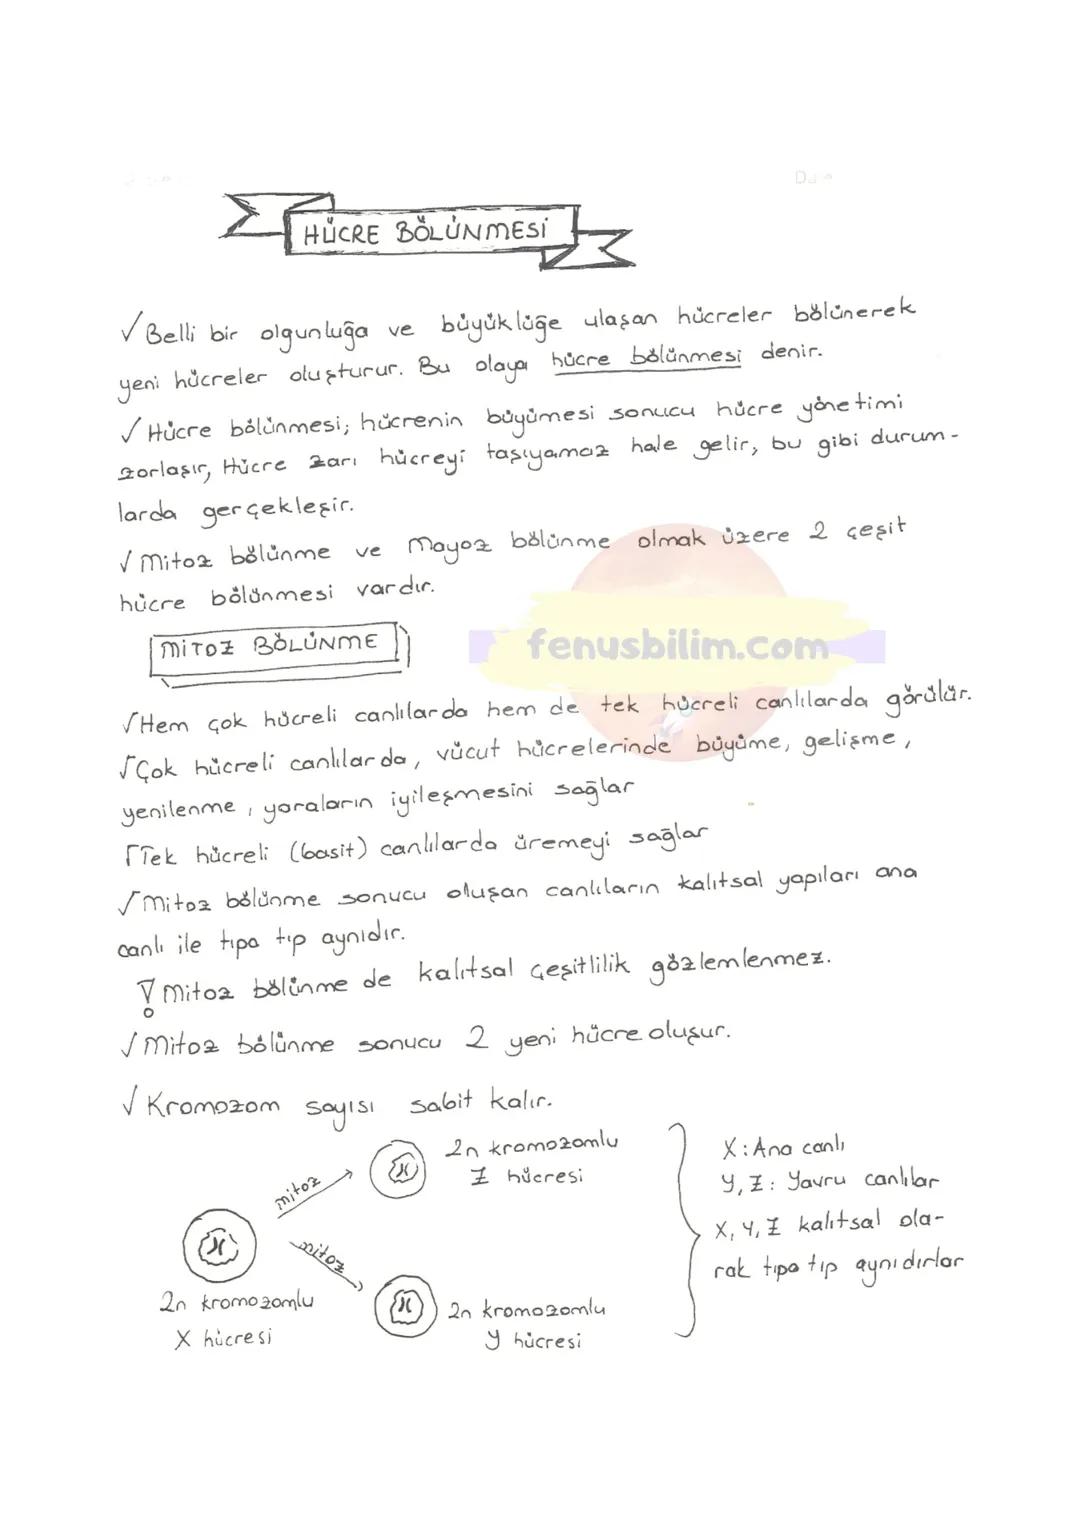 HÜCRE BÖLÜNMESİ
√ Belli bir olgunluğa ve büyüklüğe ulaşan hücreler bölünerek
yeni hücreler oluşturur. Bu olaya hücre bölünmesi denir.
√ Hücre bölünmesi; hücrenin büyümesi sonucu hücre yönetimi
zorlaşır, Hücre zarı hücreyi taşıyamaz hale gelir, bu gibi durum-
larda gerçekleşir.
√ Mitoz bölünme ve Mayoz bölünme olmak üzere 2 çeşit
hücre bölünmesi vardır.
MİTOZ BÖLÜNME
fenusbilim.com
√ Hem çok hücreli canlılarda hem de tek hücreli canlılarda görülür.
√ Çok hücreli canlılarda, vücut hücrelerinde büyüme, gelişme,
yenilenme, yaraların iyileşmesini sağlar
√ Tek hücreli (basit) canlılarda üremeyi sağlar
√ Mitoz bölünme sonucu oluşan canlıların kalıtsal yapıları ana
canlı ile tıpa tıp aynıdır.
! Mitoz bölünme de kalıtsal çeşitlilik gözlemlenmez.
√ Mitoz bölünme sonucu 2 yeni hücre oluşur.
√ Kromozom sayısı sabit kalır.
mitoz
2n kromozomlu
Z hücresi
mitoz
2n kromozomlu
X hücresi
2n kromozomlu
Y hücresi
X: Ana canlı
Y, Z: Yavru canlılar
X, Y, Z kalıtsal ola-
rak tıpa tıp aynıdırlar